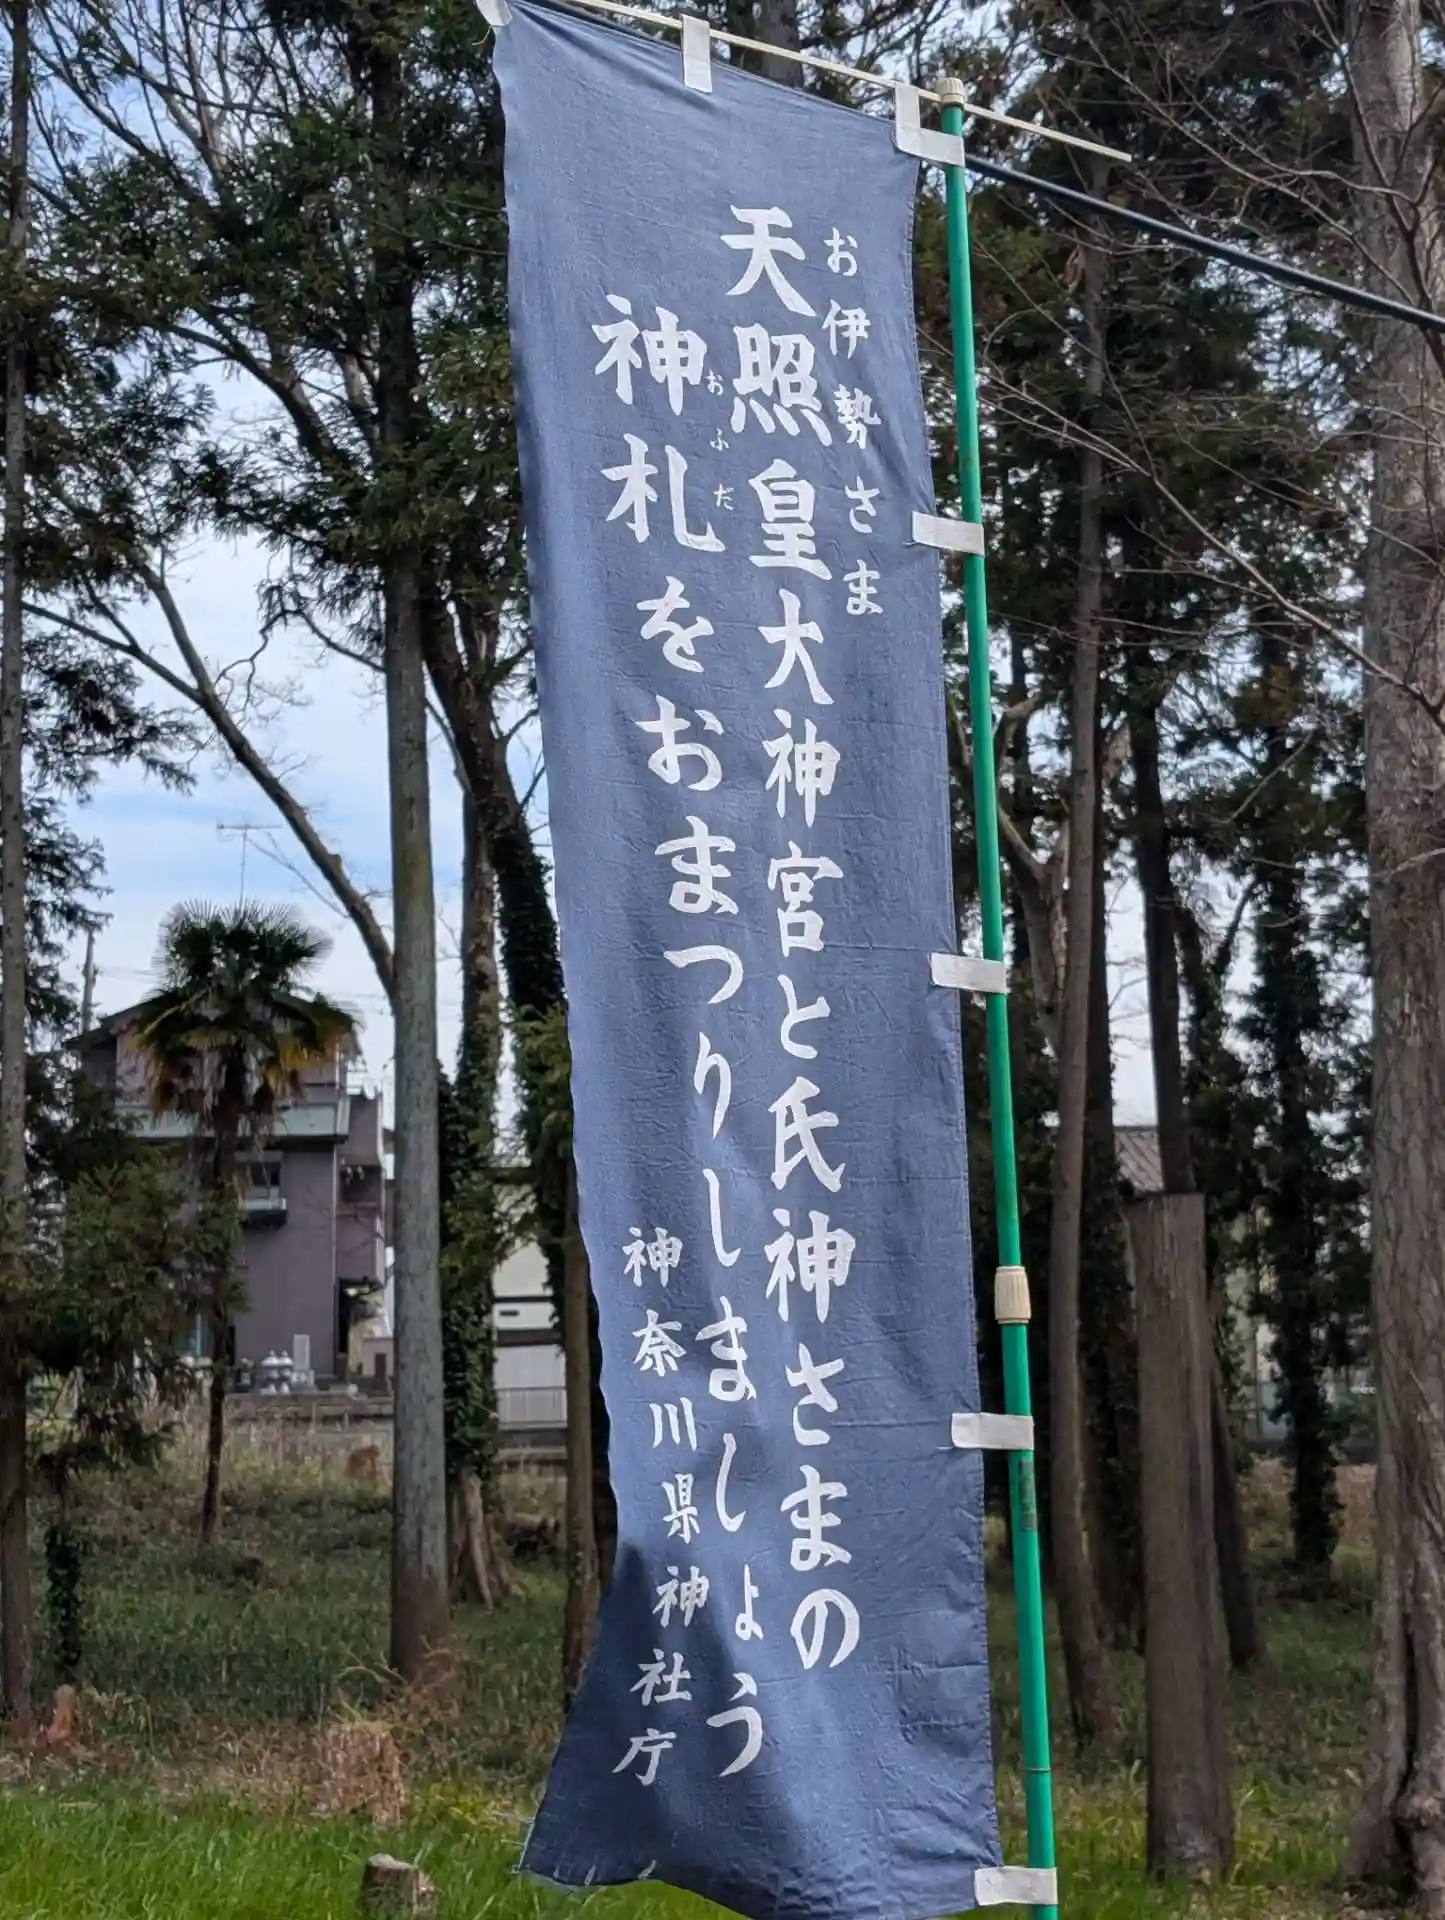 お伊勢さま
天照皇大神宮と氏神さまの
おふだ
神札をおまつりしましょう
神奈川県神社庁